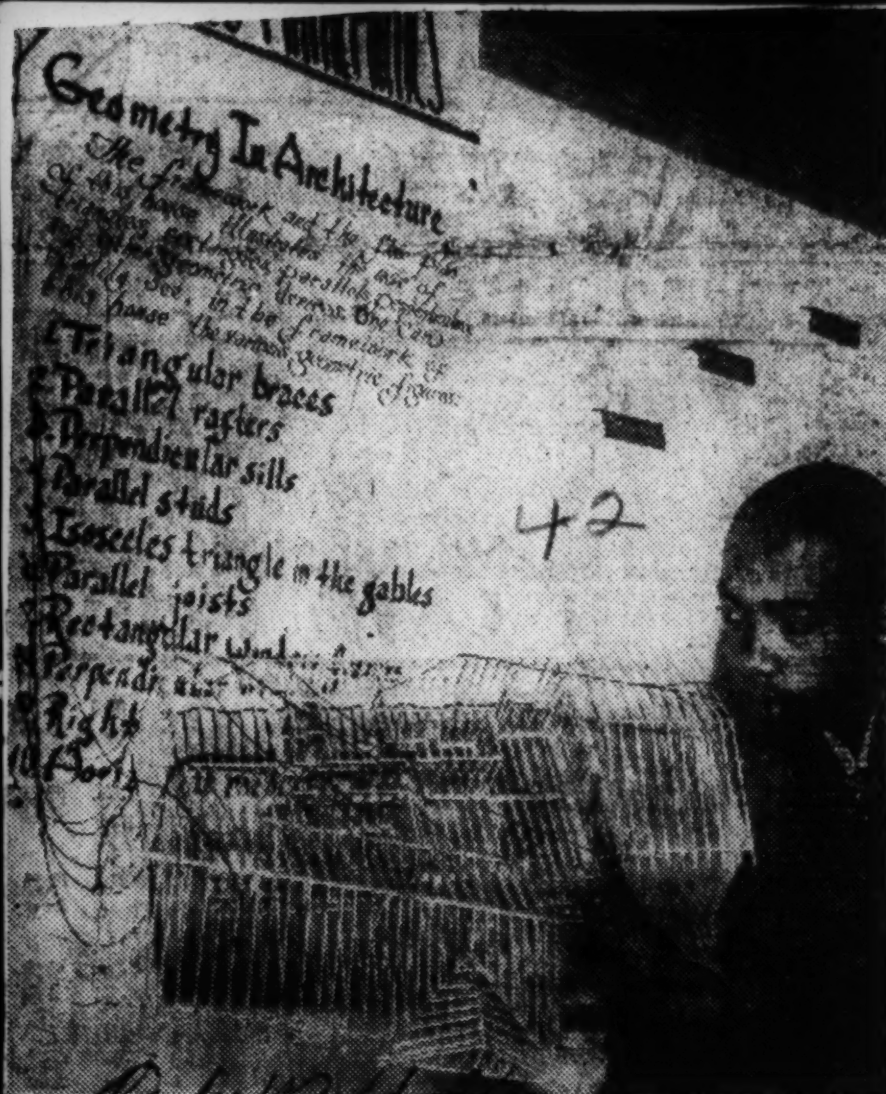 Geometry In Architecture
The framework and the floor plan
of this house illustrates the use of
triangles, rectangles, parallels, perpendiculars
and other geometric designs. One can
really see, in the framework of
this house the various geometric figures:
1. Triangular braces
2. Parallel rafters
3. Perpendicular sills
4. Parallel studs
5. Isosceles triangle in the gables
6. Parallel joists
7. Rectangular window
8. Perpendicular
9. Right
10.
42